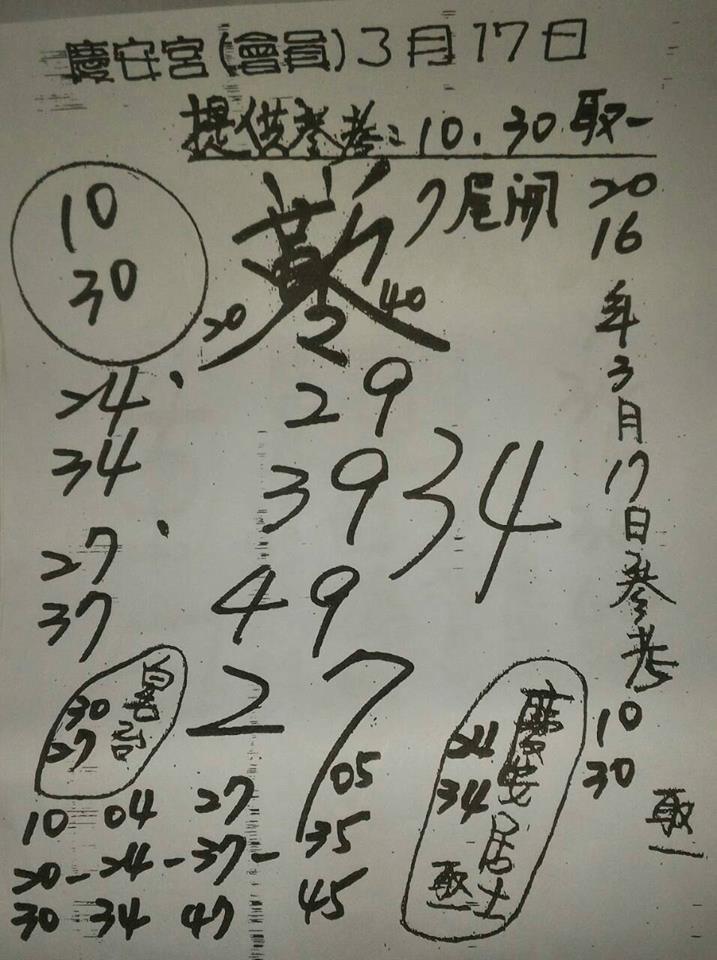 慶安宮(會員)3月17日
提供參考：10.30取一
10
30
7尾開
20
40
2
29
39
49
34
27
24
34
27
37
2016年3月17日參考
10
30
取一
30
27
慶安居士
24
34
取一
10 04 27 05
20-24-37-35
30 34 47 45